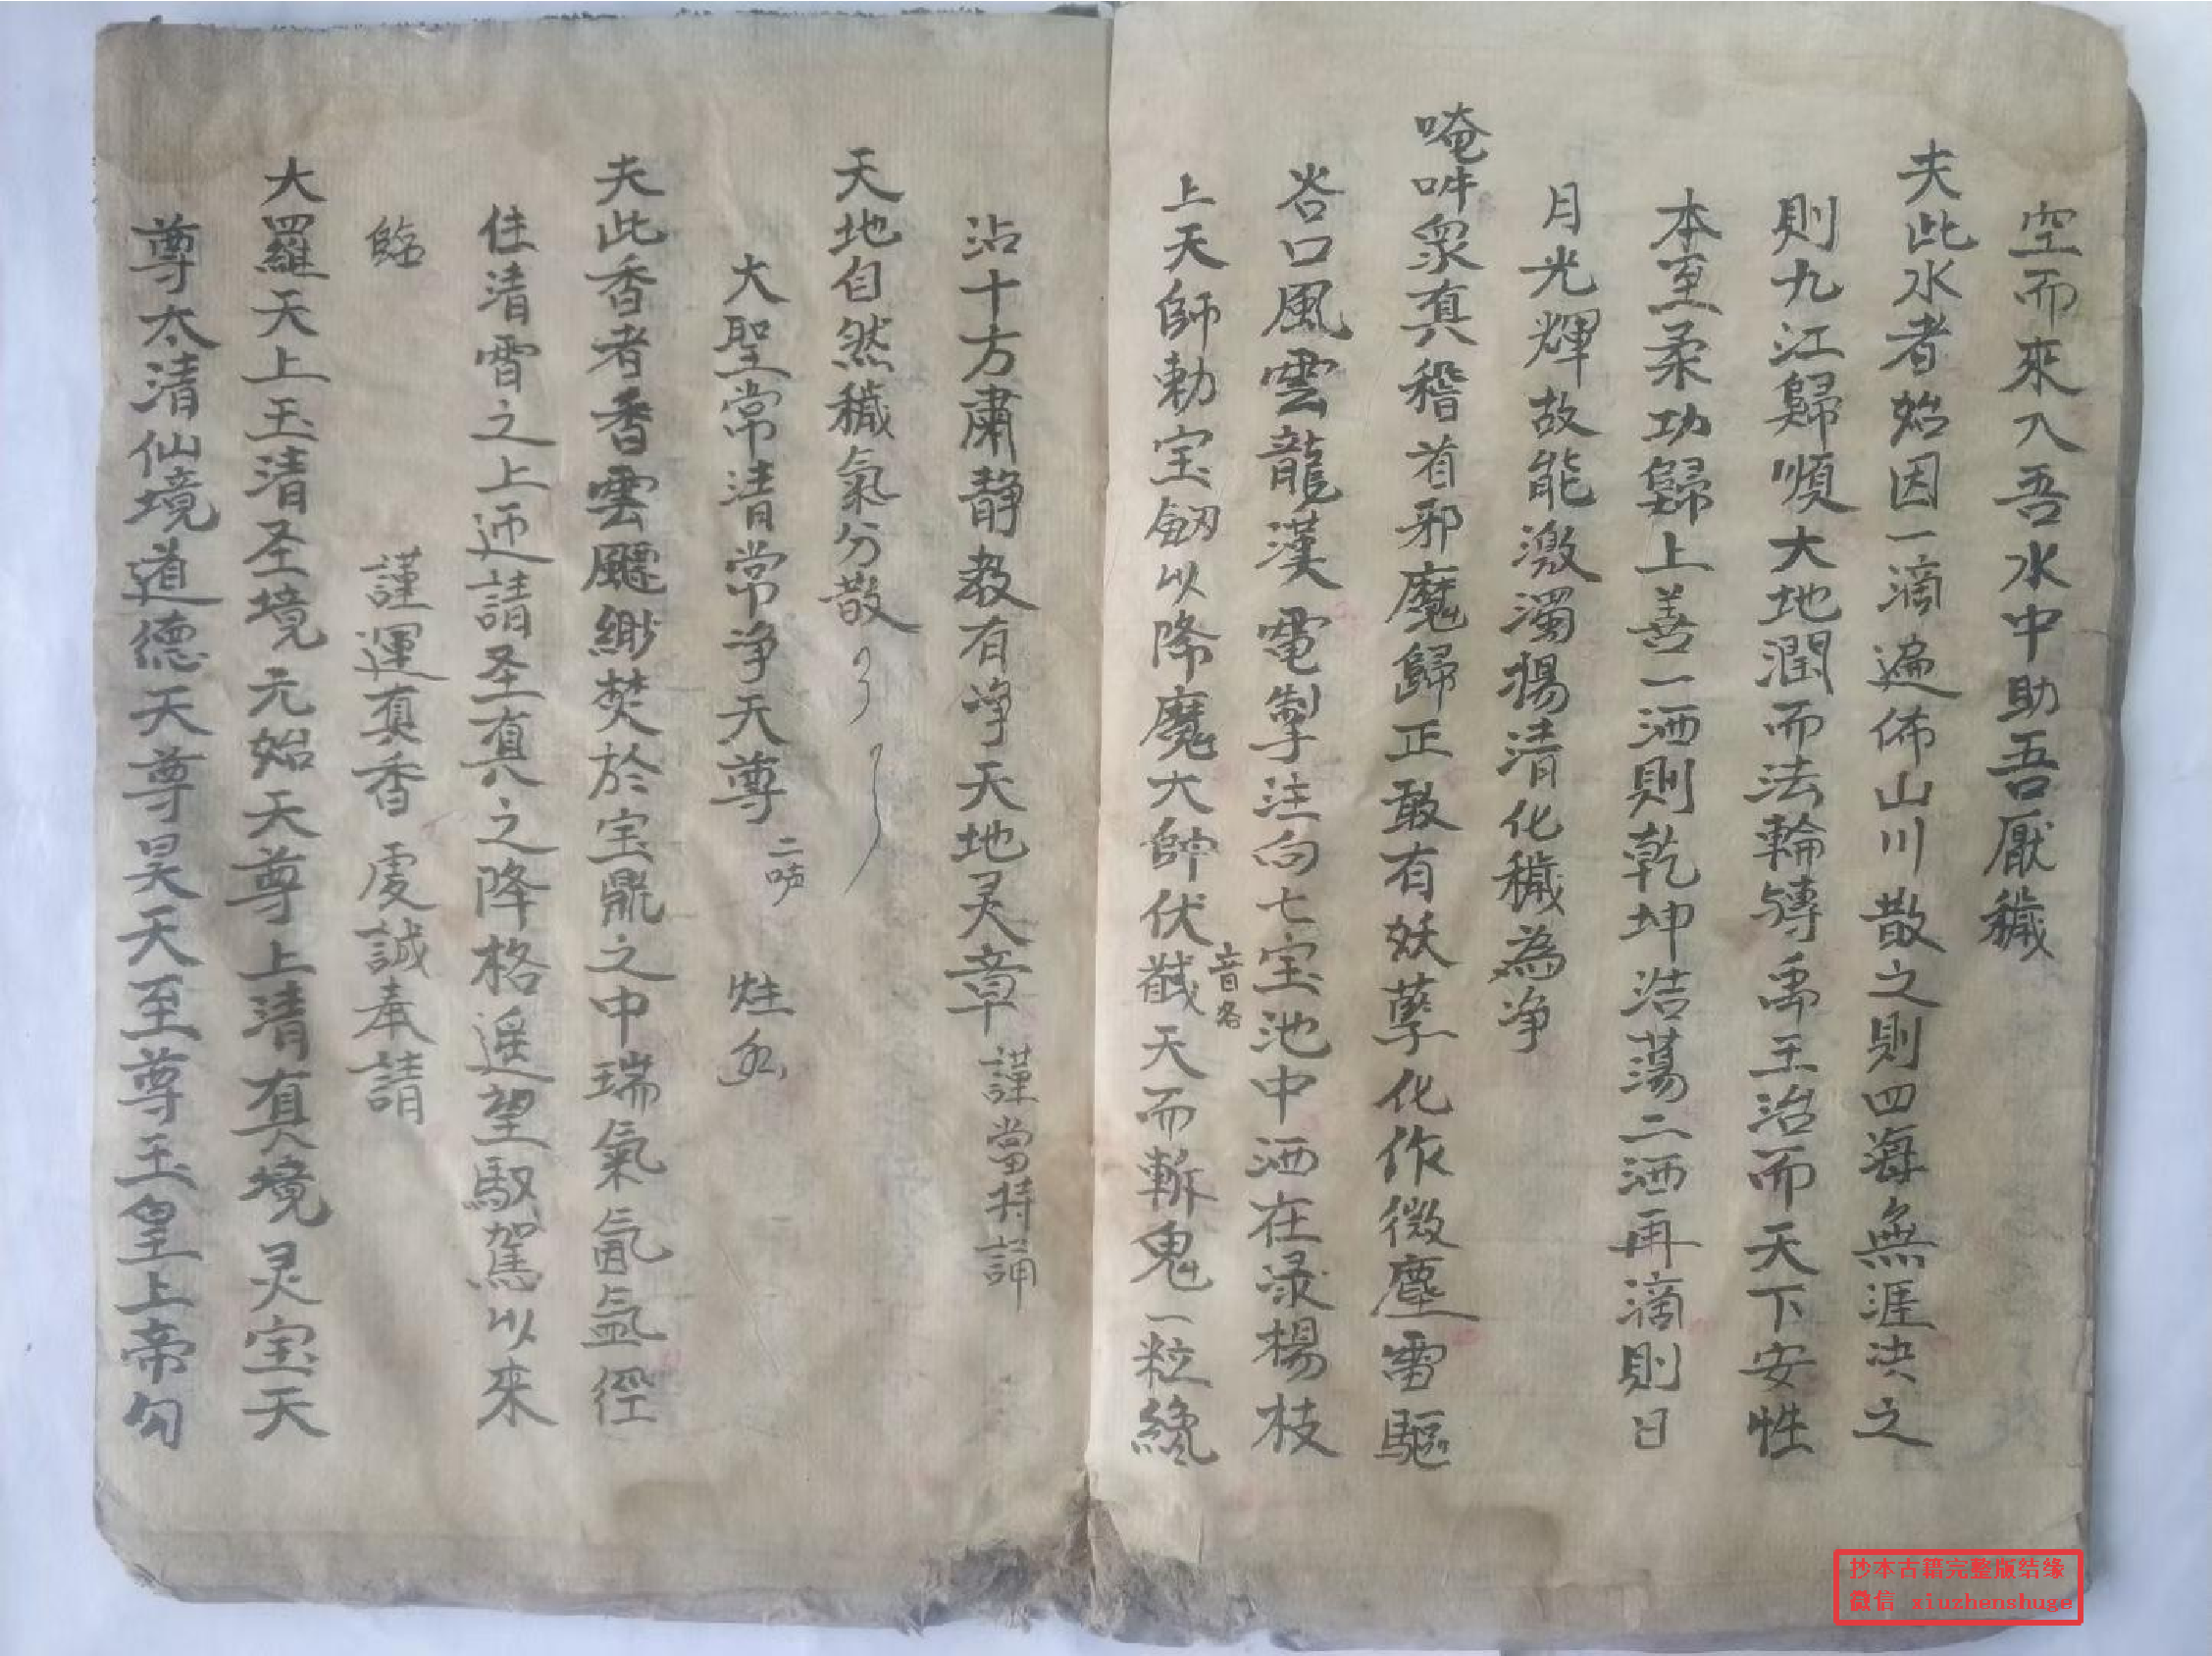 空而來入吾水中助吾厭穢
夫此水者始因一滴遍佈山川散之則四海無涯决之
則九江歸順大地潤而法輪轉禹王治而天下安性
本至柔功歸上善一洒則乾坤浩蕩二洒再滴則日
月光輝故能激濁揚清化穢為净
唵吽衆真稽首邪魔歸正敢有妖孽化作微塵雷驅
谷口風雲龍漢電掣注向七宝池中洒在渌楊枝
上天師勅宝劒以降魔大帥伏 天而斬鬼一粒纔
音
沾十方肅静教有净天地灵章 謹當持誦
天地自然穢氣分散
大聖常清常净天尊 二吽
夫此香者香雲飄緲焚於宝鼎之中瑞氣氤氲徑
住清霄之上迊請圣真之降格遥望馭駕以來
臨 謹運真香虔誠奉請
大羅天上玉清圣境元始天尊上清真境灵宝天
尊太清仙境道德天尊昊天至尊玉皇上帝勾
抄本古籍完整版结缘
微信 xiuzhenshuge